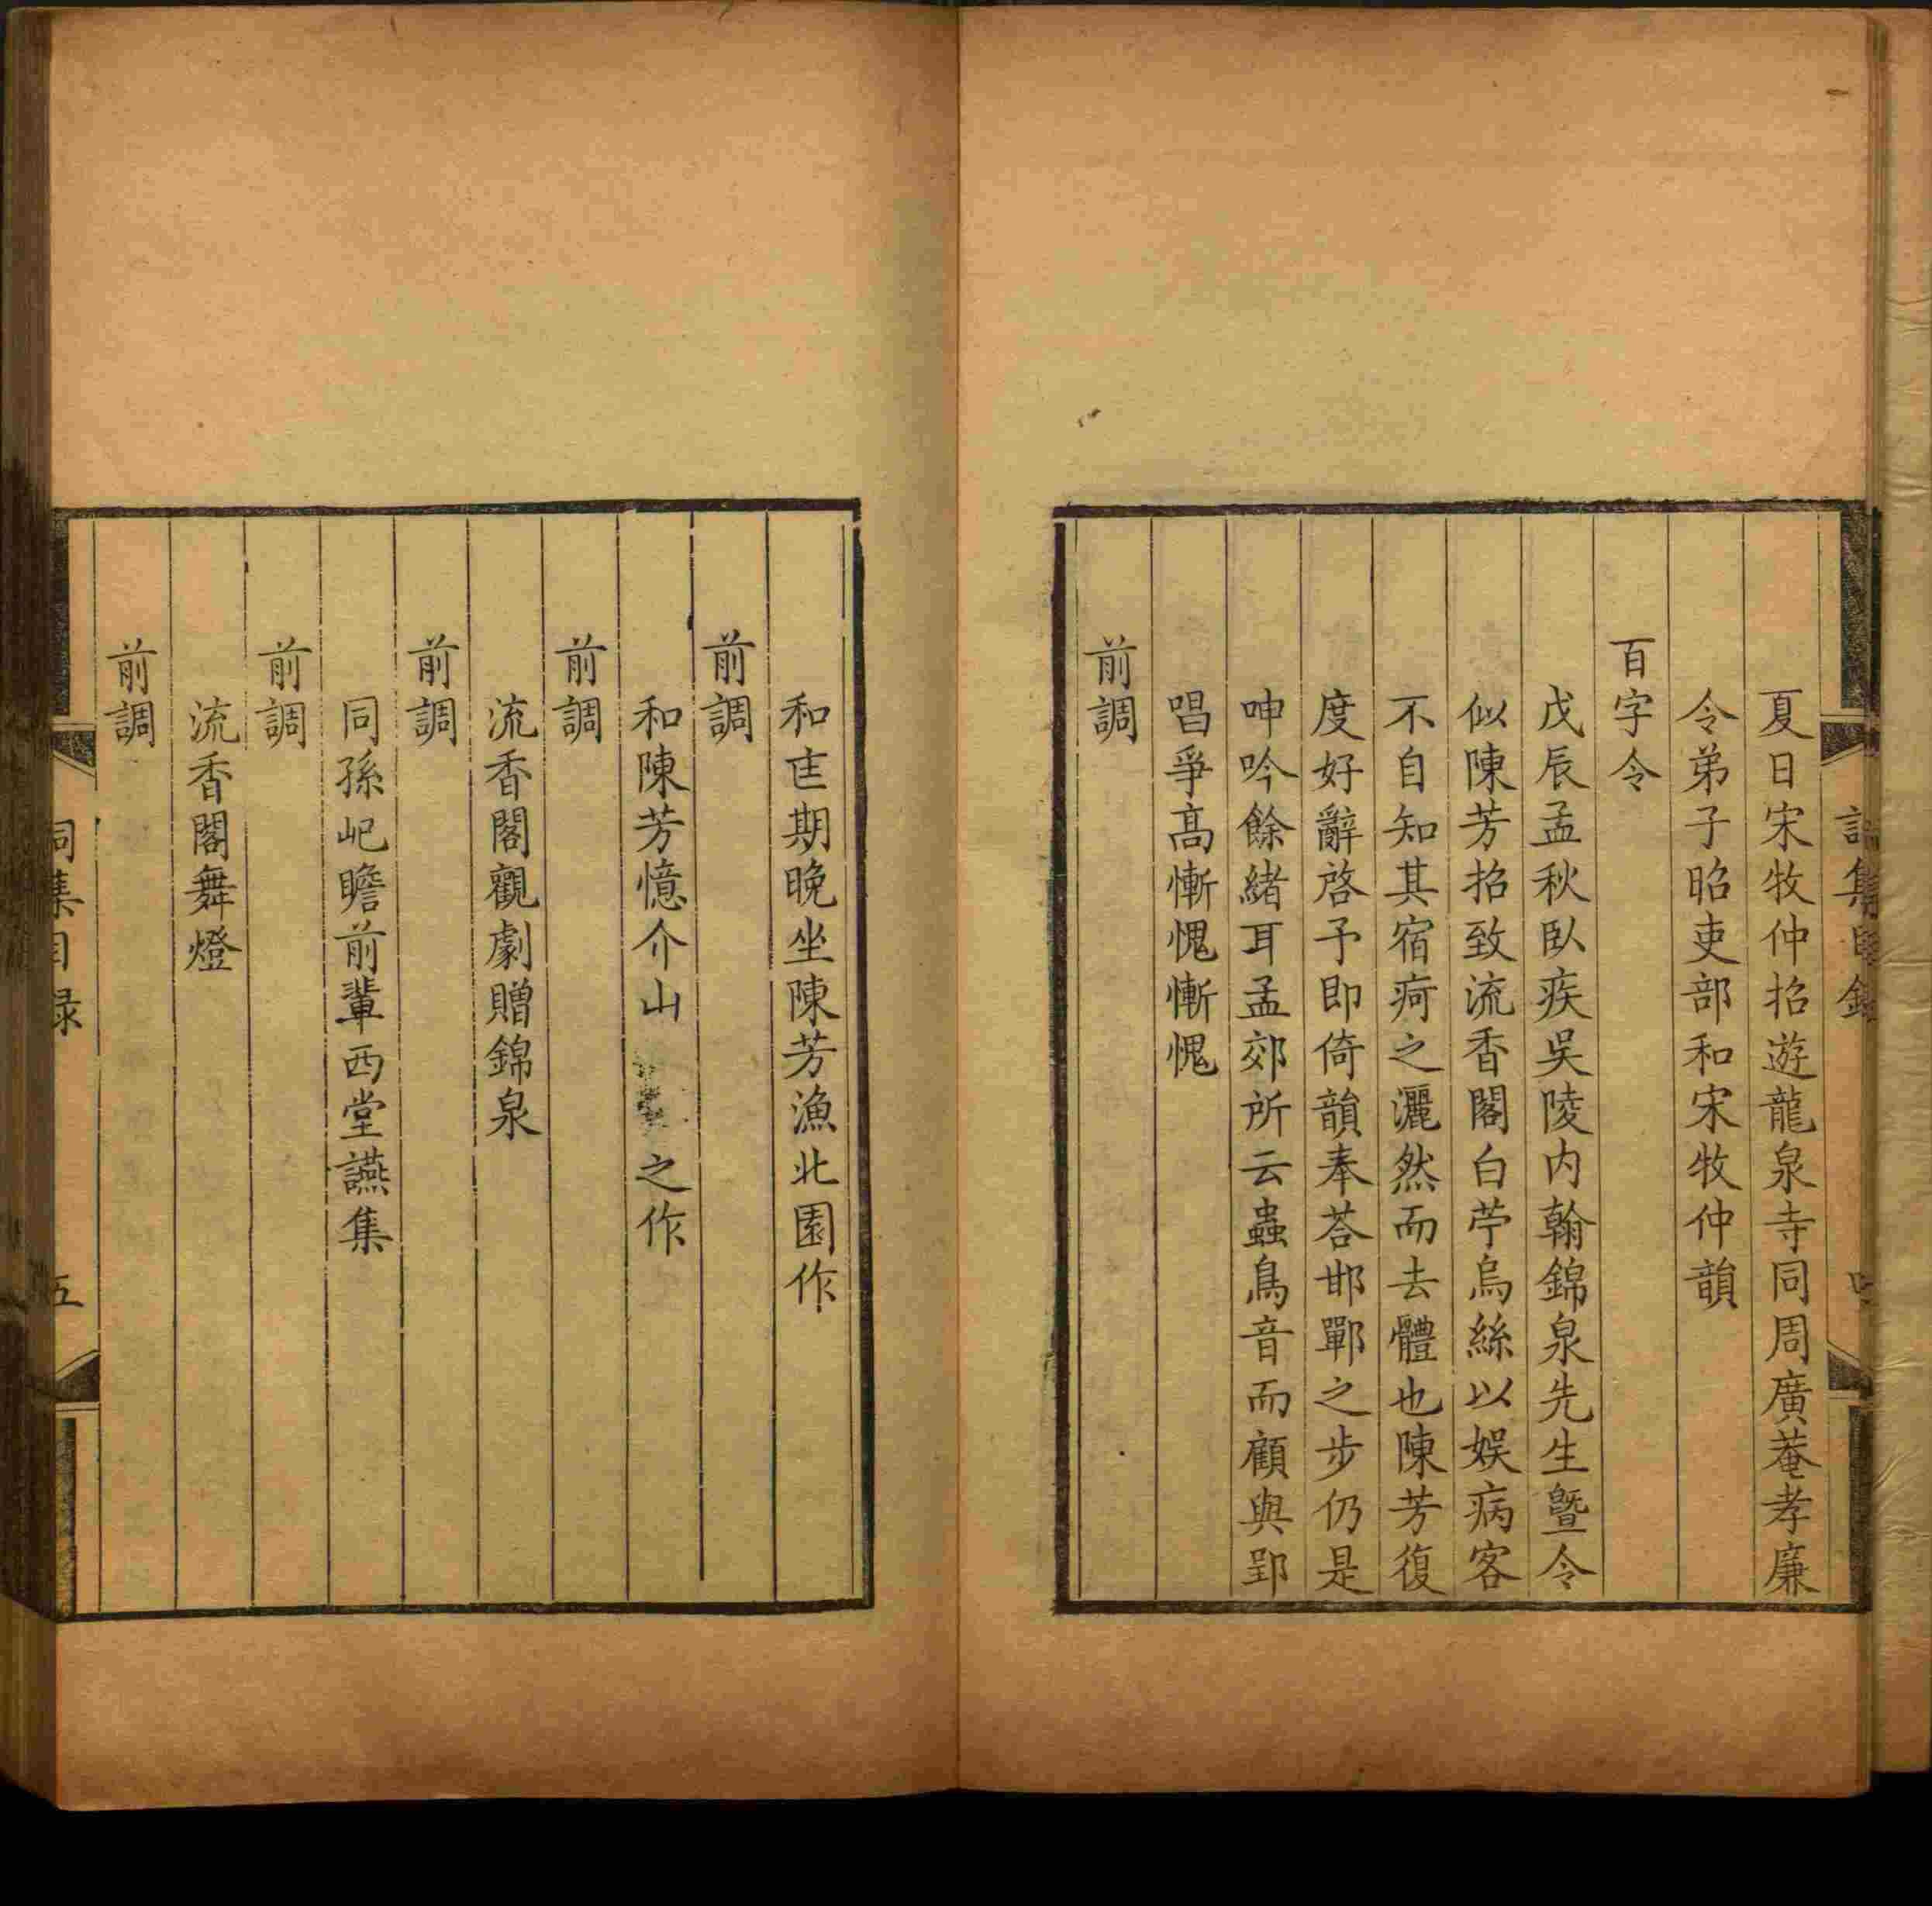 詞集目錄
夏日宋牧仲招遊龍泉寺同周廣菴孝廉
令弟子昭吏部和宋牧仲韻
百字令
戊辰孟秋臥疾吳陵內翰錦泉先生暨令
似陳芳招致流香閣白苧烏絲以娛病客
不自知其宿痾之灑然而去體也陳芳復
度好辭啓予即倚韻奉荅邯鄲之步仍是
呻吟餘緒耳孟郊所云蟲鳥音而顧與郢
唱爭高慚愧慚愧
前調
和𠤰期晚坐陳芳漁北園作
前調
和陳芳憶介山之作
前調
流香閣觀劇贈錦泉
前調
同孫屺瞻前輩西堂讌集
前調
流香閣舞燈
前調
詞集目録
五